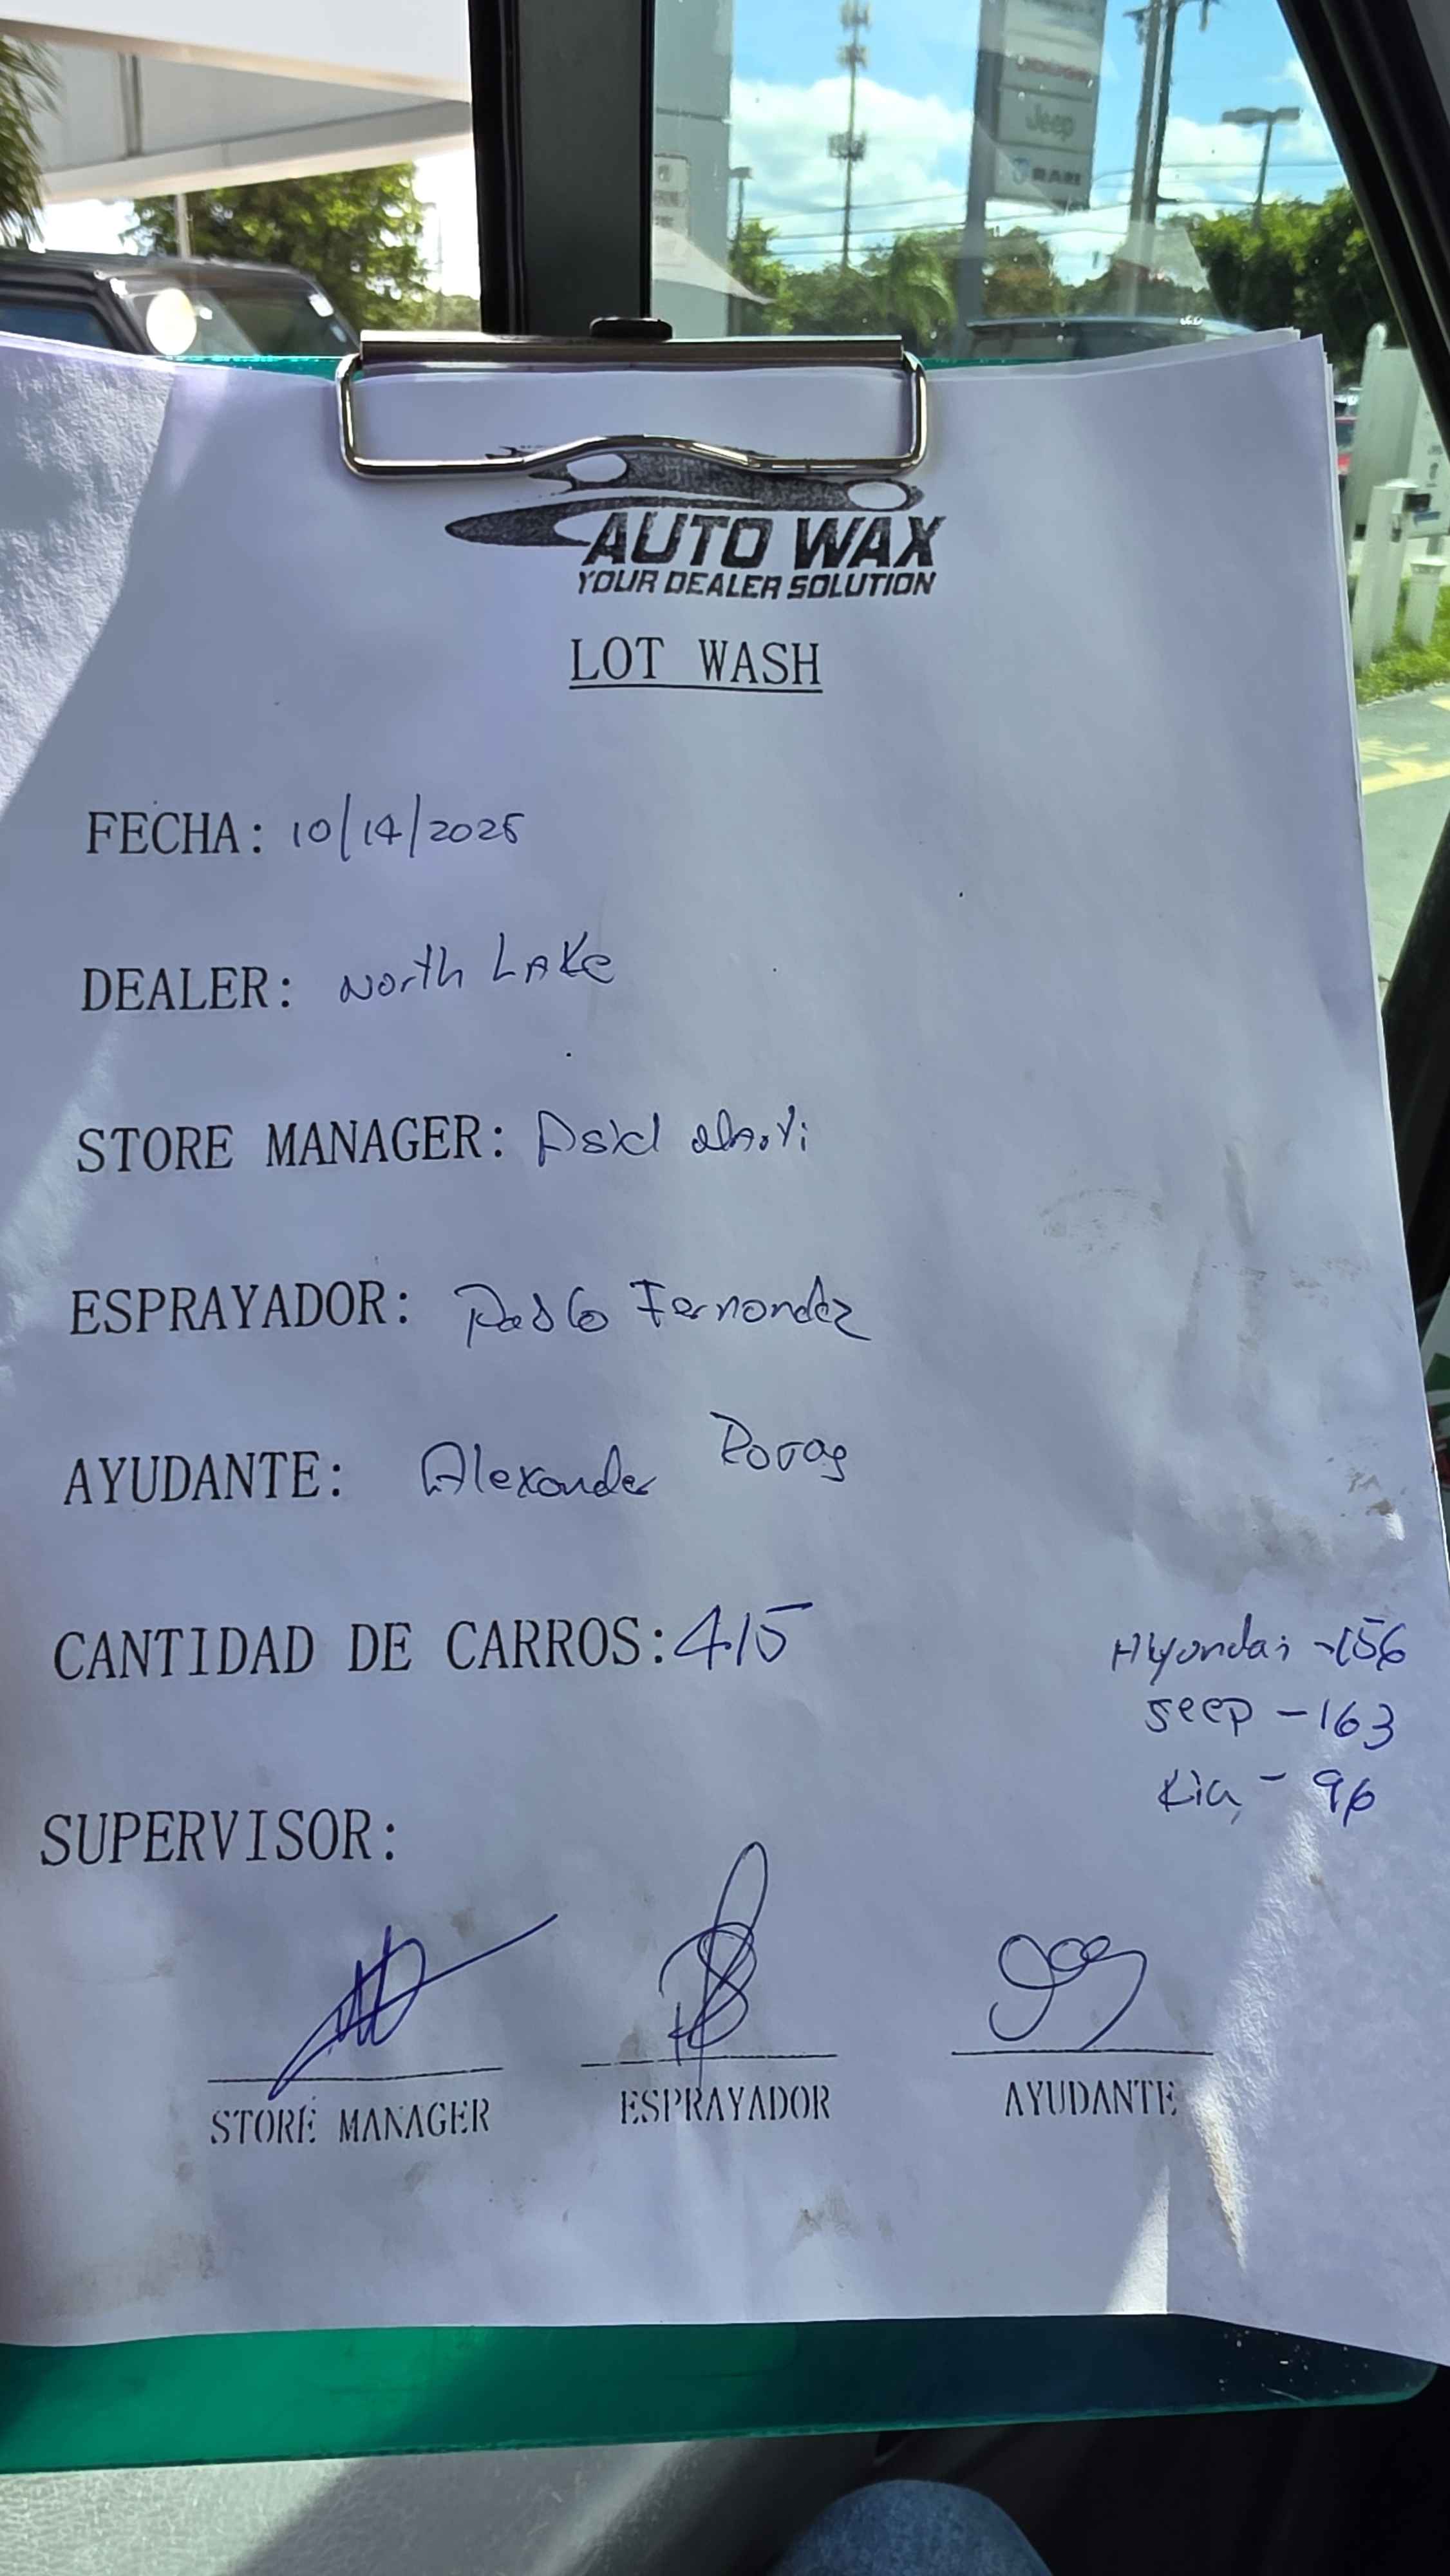 Jeep
RAM
AUTO WAX
YOUR DEALER SOLUTION
LOT WASH
FECHA: 10/14/2025
DEALER: North Lake
STORE MANAGER:
ESPRAYADOR: Pablo Fernandez
AYUDANTE: Alexander
CANTIDAD DE CARROS: 415
Hyundai - 156
Jeep - 163
Kia - 96
SUPERVISOR:
STORE MANAGER
ESPRAYADOR
AYUDANTE